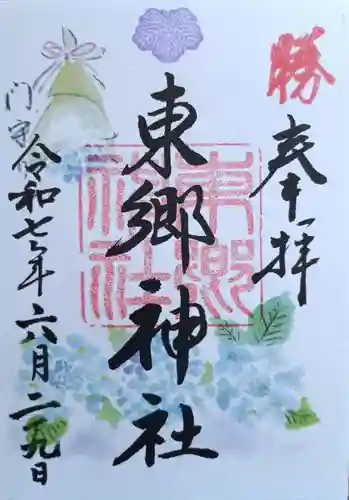 勝
奉拝
東郷神社
東郷
神社
門守
令和七年六月二十九日